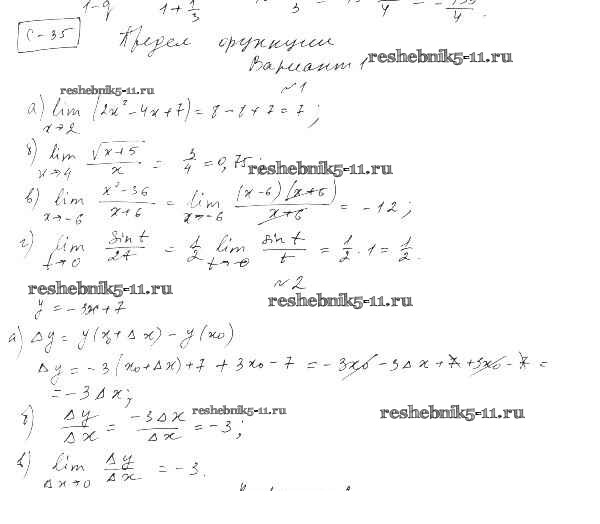 1-q 1+1/3 3 4 4
С-35
Предел функции
Вариант 1
reshebnik5-11.ru
reshebnik5-11.ru
№1
а) lim x→2 (2x²-4x+7) = 8-8+7=7;
б) lim x→4 √(x+5)/x = 3/4 = 0,75;
reshebnik5-11.ru
в) lim x→-6 (x²-36)/(x+6) = lim x→-6 (x-6)(x+6)/(x+6) = -12;
г) lim t→0 sin t/2t = 1/2 lim t→0 sin t/t = 1/2 · 1 = 1/2.
№2
reshebnik5-11.ru
reshebnik5-11.ru
y = -3x+7
а) Δy = y(x₀+Δx) - y(x₀)
Δy = -3(x₀+Δx)+7+3x₀-7 = -3x₀-3Δx+7+3x₀-7 =
= -3Δx;
б) Δy/Δx = -3Δx/Δx = -3;
reshebnik5-11.ru
reshebnik5-11.ru
в) lim Δx→0 Δy/Δx = -3.